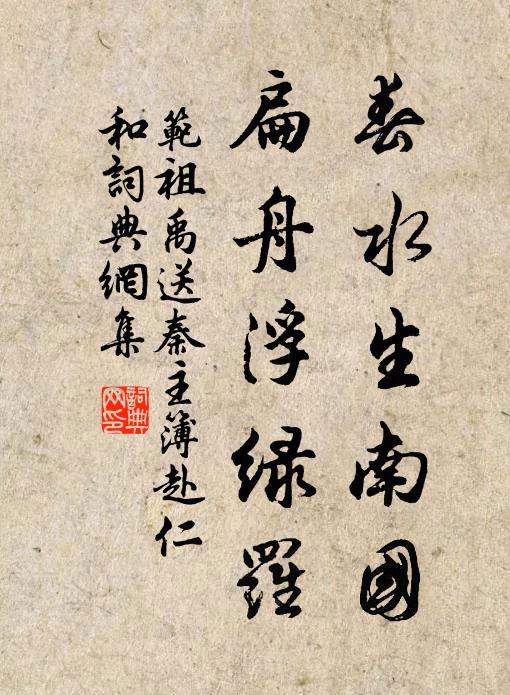 春水生南國
扁舟浮綠羅
範祖禹送秦主簿赴仁
和詞典網集
詞典
网印